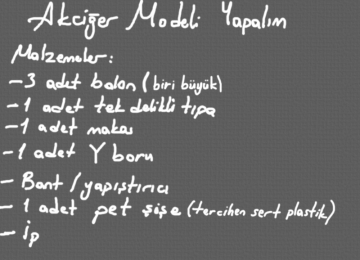 Akciğer Modeli Yapalım
Malzemeler:
- 3 adet balon (biri büyük)
- 1 adet tek delikli tıpa
- 1 adet makas
- 1 adet Y boru
- Bant / yapıştırıcı
- 1 adet pet şişe (tercihen sert plastik)
- İp